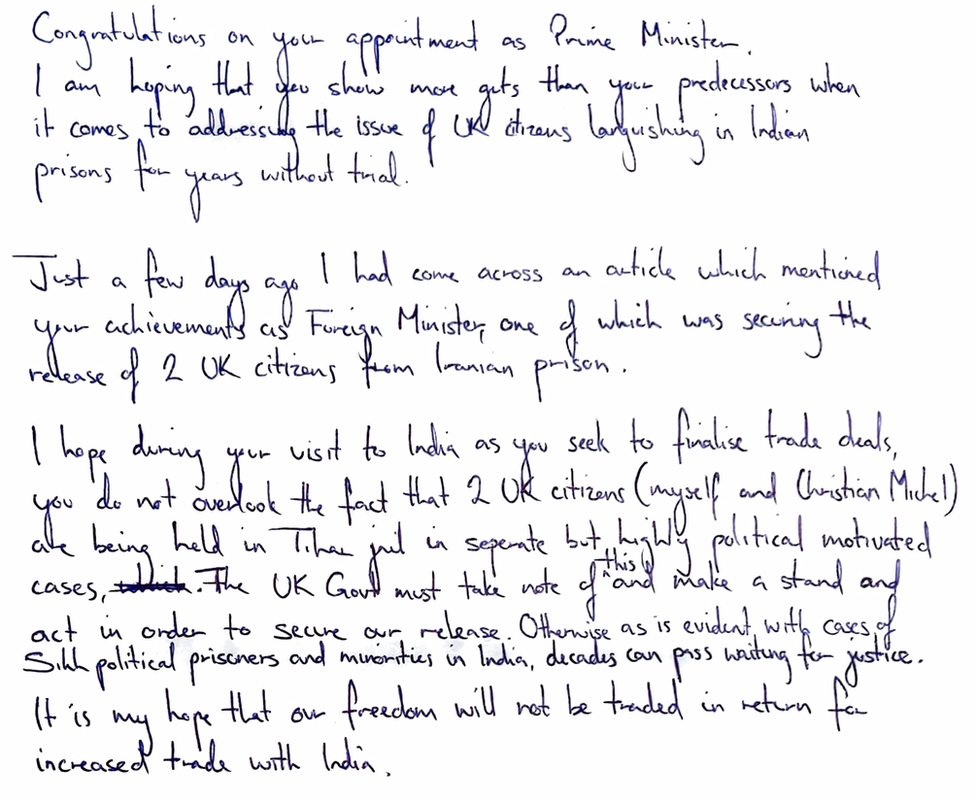 Congratulations on your appointment as Prime Minister.
I am hoping that you show more guts than your predecessors when
it comes to addressing the issue of UK citizens languishing in Indian
prisons for years without trial.
Just a few days ago I had come across an article which mentioned
your achievements as Foreign Minister, one of which was securing the
release of 2 UK citizens from Iranian prison.
I hope during your visit to India as you seek to finalise trade deals,
you do not overlook the fact that 2 UK citizens (myself and Christian Michel)
are being held in Tihar jail in seperate but highly political motivated
cases, which. The UK Govt must take note of this and make a stand and
act in order to secure our release. Otherwise as is evident, with cases of
Sikh political prisoners and minorities in India, decades can pass waiting for justice.
It is my hope that our freedom will not be traded in return for
increased trade with India.